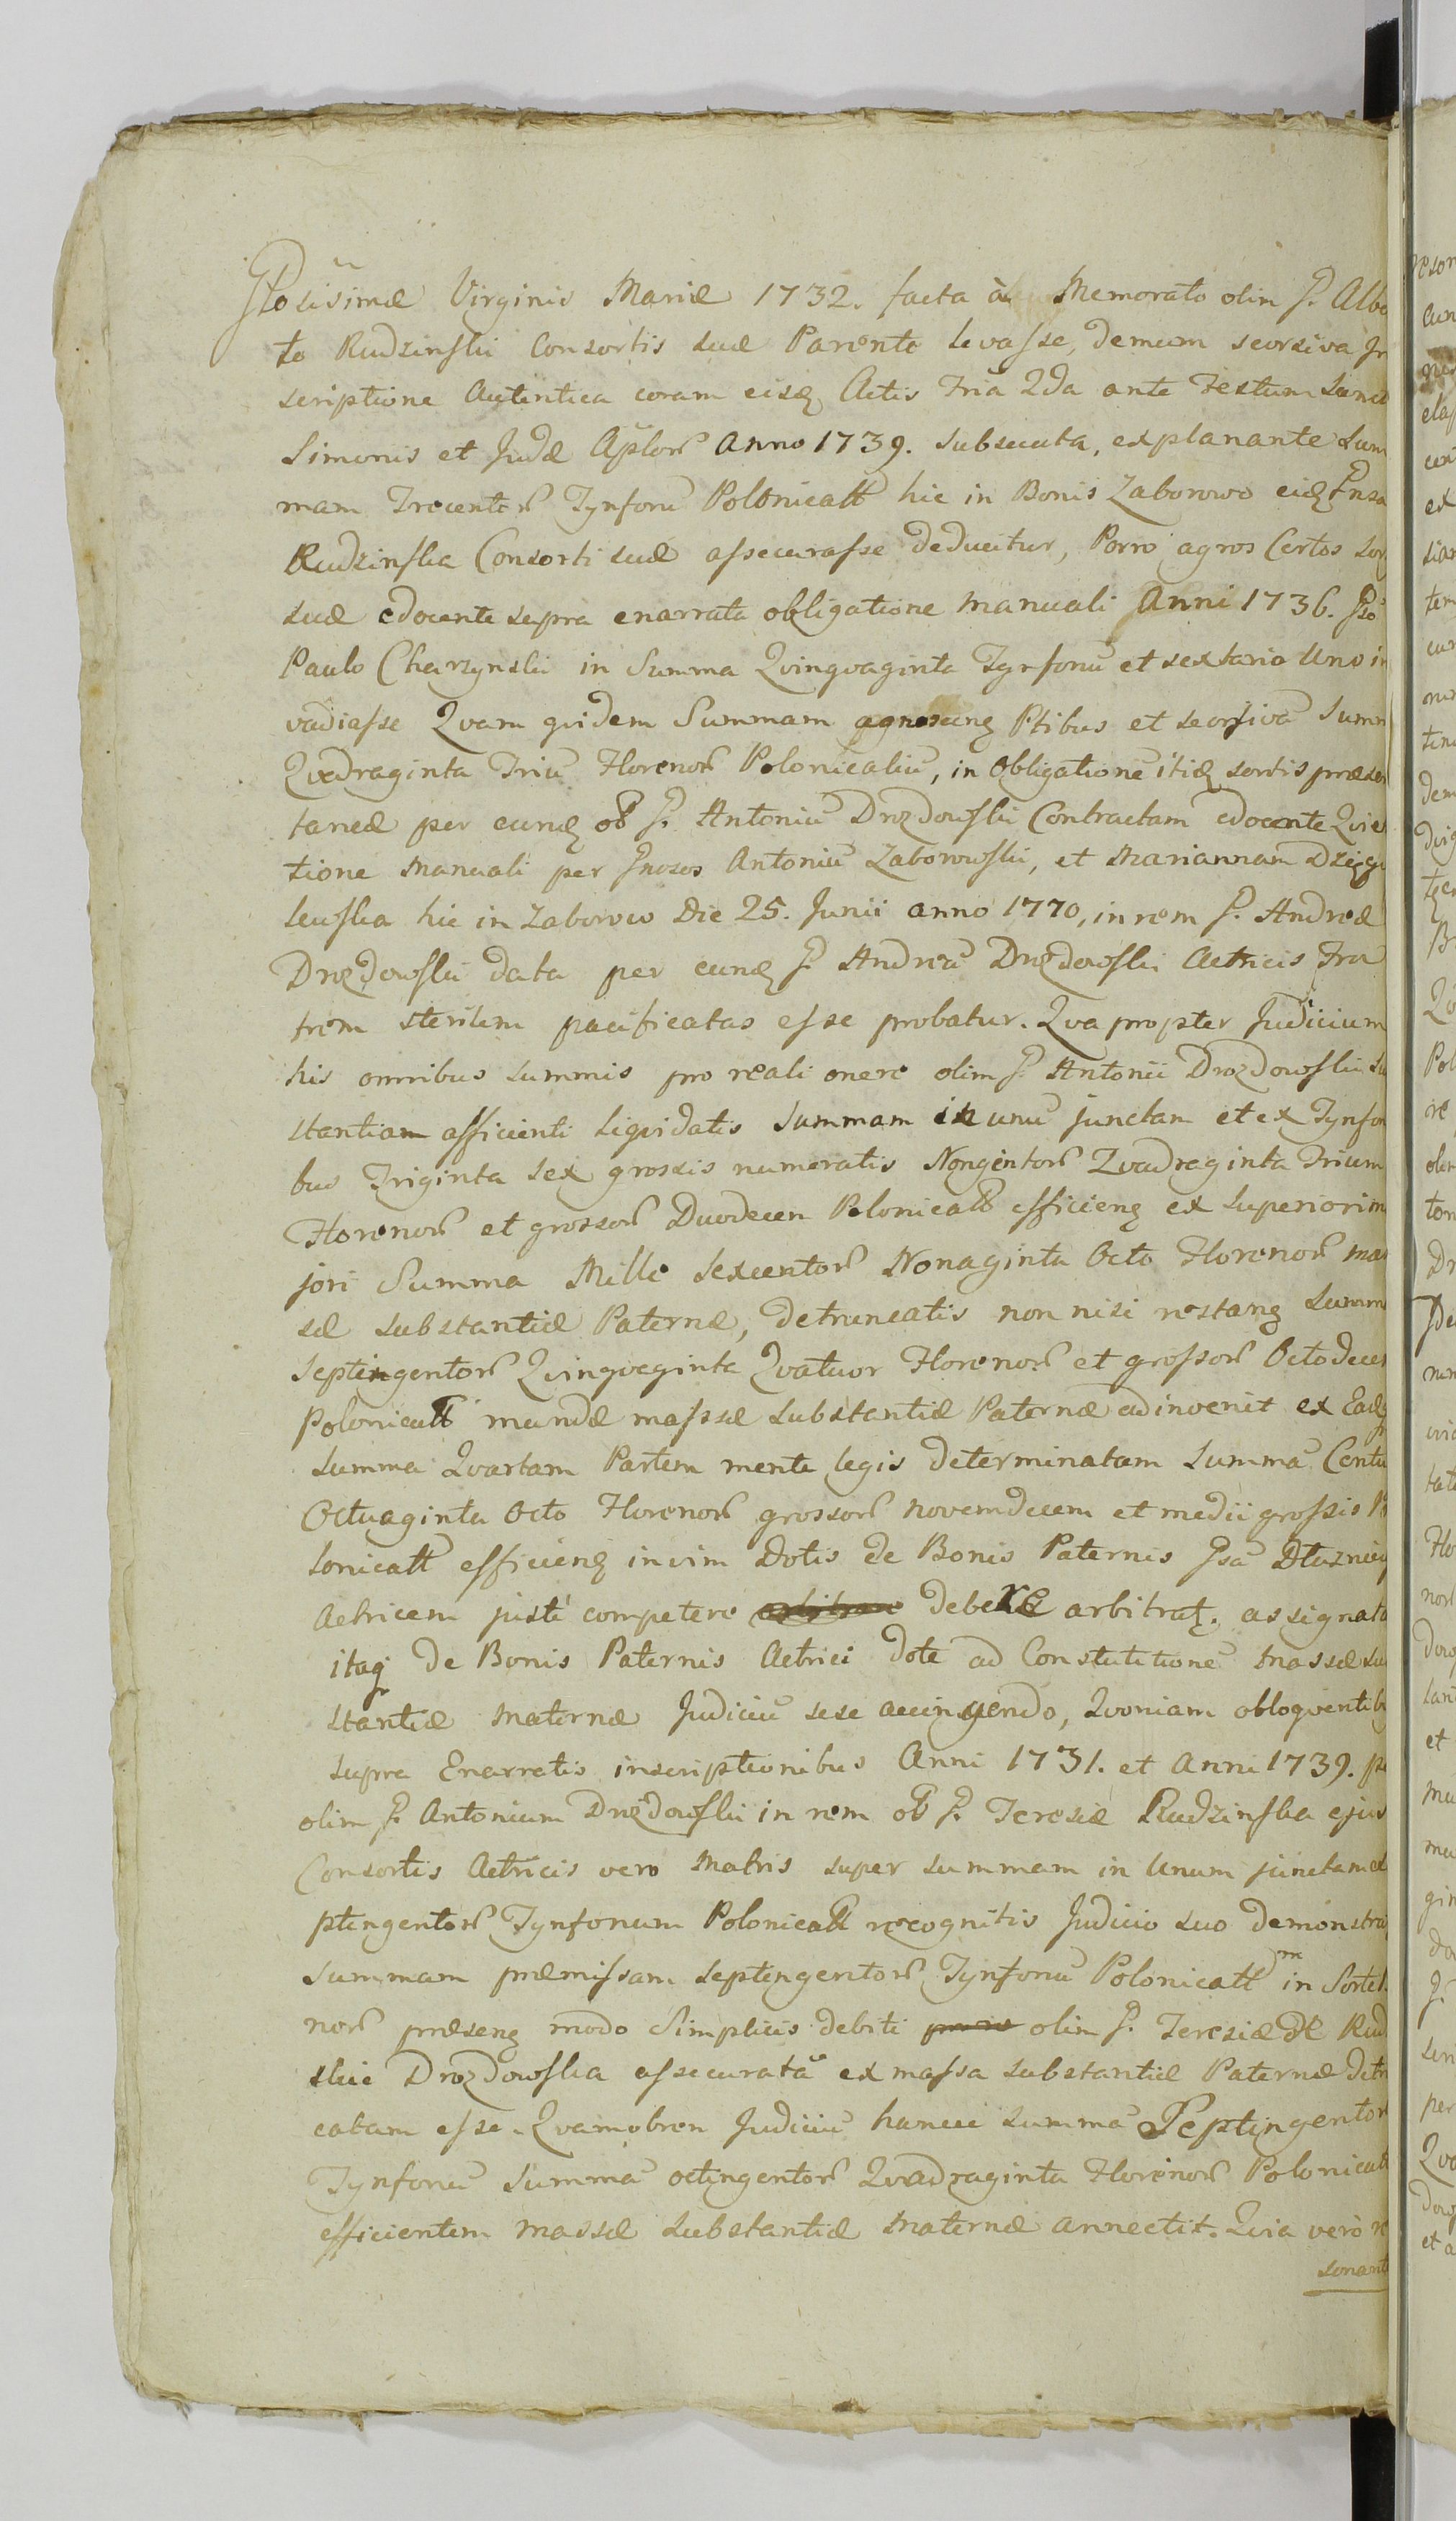 Gloĩsissimæ Virginis Mariæ 1732. facta à Memorato olim P. Albe
to Rudzinski Consortis suæ Parente levasse, demum seorsiva In
scriptione Autentica coram eisq Actis Fria 2da ante Festum Sanct
Simonis et Judæ Aplor Anno 1739. subsecuta, explanante Sum
mam Trecentor Tynfonū Polonicall hic in Bonis Zaborowo eidq
Rudzinska Consorti suæ assecurasse deducitur, Porro agros Certos sor
suæ edocente supra enarrata obligatione manuali Anni 1736. Gso
Paulo Charzynski in Summa Qvinqvaginta Tynfonū et sextario Uno in
vadiasse Qvam qvidem Summam agnoscenq Ptibus et seorsivā Summ
Qvadraginta Triū Florenor Polonicaliū, in Obligatione itidq sortis præsen
taneæ per eundq ob P. Antoniū Drozdowski Contractam edocente Qvie
tione Manuali per Gnosos Antoniū Zaborowski, et Mariannam Dzięge
lewska hic in Zaborowo Die 25. Junii anno 1770, in rem P. Andreæ
Drozdowski data per eundq P. Andreā Drozdowski Actricis Fra
trem sterilem pacificatas esse probatur. Qva propter Judicium
his omnibus summis pro reali onere olim P. Antonii Drozdowski su
stantiam afficienti liqvidatis Summam in unū junctam et ex Tynfon
bus Triginta sex grossis numeratis Nongentor Qvadraginta Trium
Florenor et grossor Duodecem Polonicall efficienq ex superiori m
jori Summa Mille sexcentor Nonaginta Octo Florenor mas
sæ substantiæ Paternæ, detruncatis non nisi restanq Summ
Septingentor Qvinqvaginta Qvatuor Florenor et grossor Octodecem
Polonicall mundæ massæ substantiæ Paternæ adinvenit ex Eadq
summa Qvartam Partem mente legis determinatam Summā Centu
Octuaginta Octo Florenor grossor novemdecem et medii grossis Po
lonicall efficienq in vim Dotis de Bonis Paternis Gsā Dłużniew
Actricem justé competere debere arbitrat. assignata
itaq de Bonis Paternis Actrici dote ad Constutitione massæ su
stantiæ maternæ Judiciū sese accingendo, Qvoniam obloqventib
supra Enarratis inscriptionibus Anni 1731. et Anni 1739. p
olim P. Antonium Drozdowski in rem ob P. Teresiæ Rudzinska ejus
Consortis Actricis vero Matris super summam in Unum junctam se
ptengentor Tynfonum Polonicall recognitis Judicio suo demonstra
summam præmissam septingentor Tynfonū Polonicall in Sorte
nor præsenq modo simplicis debiti olim P. Teresiæ de Rud
skie Drozdowska assecuratā ex massa substantiæ Paternæ detr
catam esse. Qvamobrem Judiciū hancce summā Septingentor
Tynfonū summā octingentor Qvadraginta Florenor Polonicall
efficientem massæ substantiæ maternæ annectit. Qvia verò re
sonant